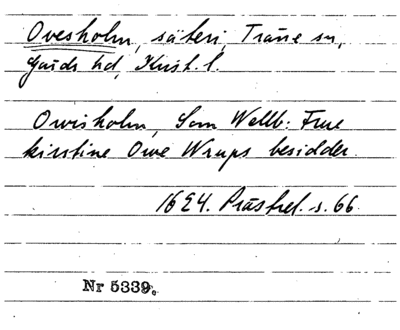 Ovesholm, säteri, Träne sn,
Gärds hd, Krist. l.
Owisholm, Som Wellb: Frue
kirstine Owe Wrups besidder.
1624. Prästrel. s. 66.
Nr 5339.